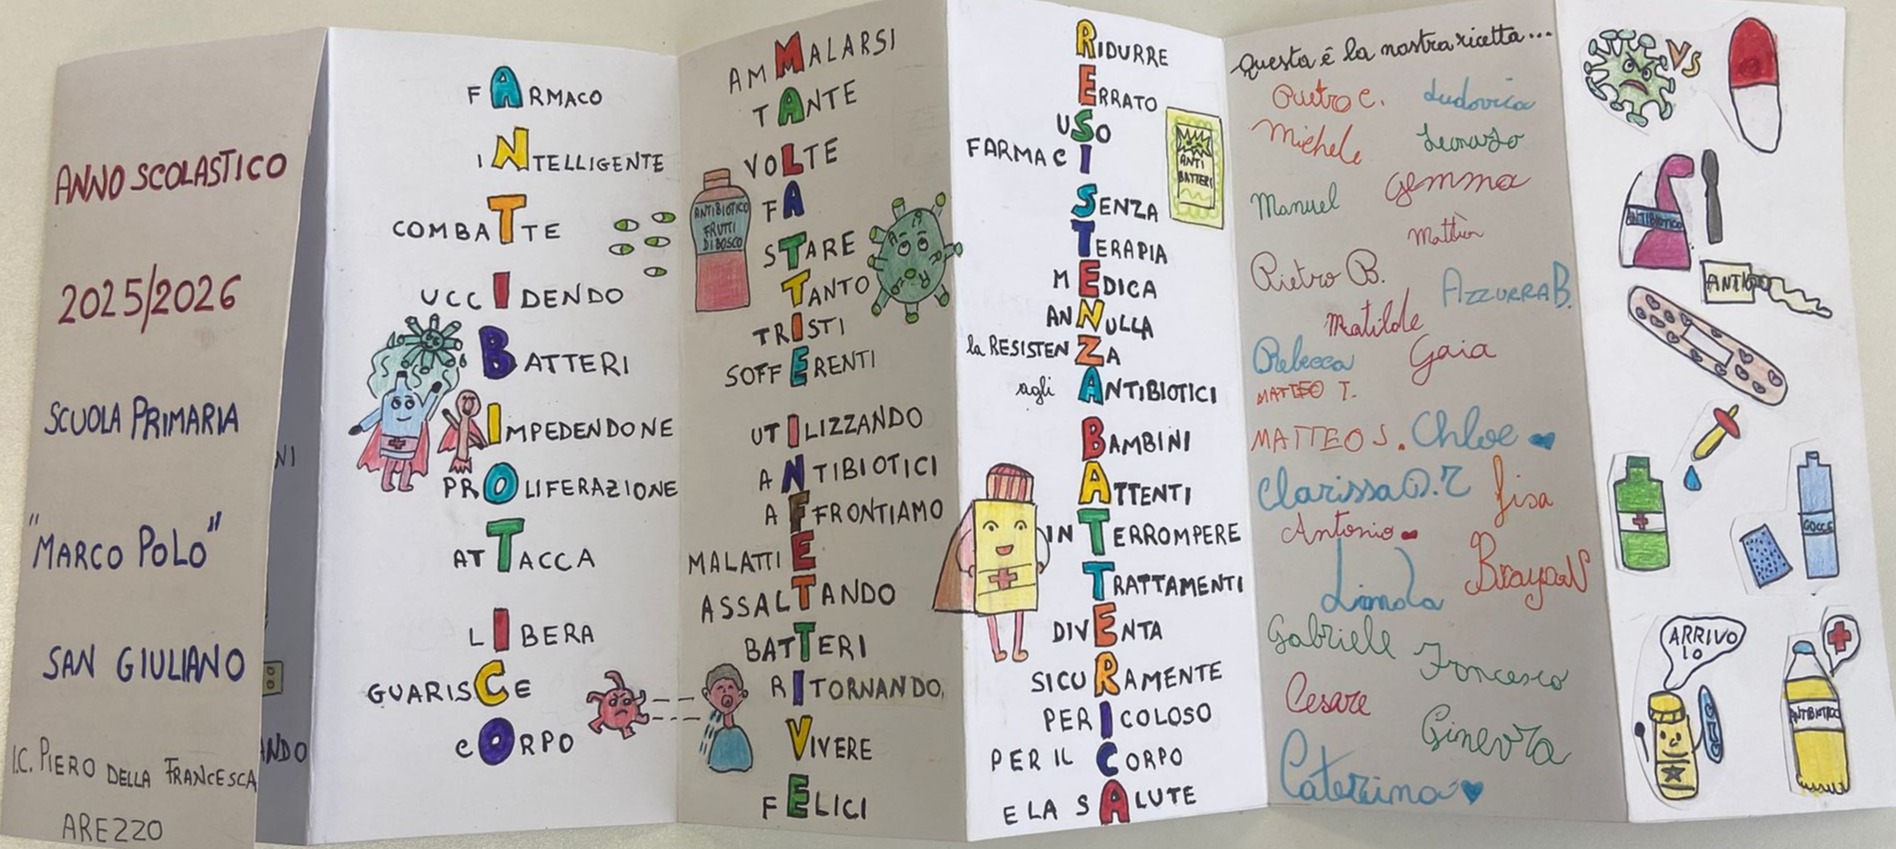 ANNO SCOLASTICO
2025/2026
SCUOLA PRIMARIA
"MARCO POLO"
SAN GIULIANO
I.C. PIERO DELLA FRANCESCA
AREZZO
NI
ANDO
FARMACO
INTELLIGENTE
COMBATTE
UCCIDENDO
BATTERI
IMPEDENDONE
PROLIFERAZIONE
ATTACCA
LIBERA
GUARISCE
CORPO
AMMALARSI
TANTE
VOLTE
FA
STARE
TANTO
TRISTI
SOFFERENTI
UTILIZZANDO
ANTIBIOTICI
AFFRONTIAMO
MALATTIE
ASSALTANDO
BATTERI
RITORNANDO,
VIVERE
FELICI
ANTIBIOTICO
FRUTTI
DI BOSCO
RIDURRE
ERRATO
USO
FARMACI
SENZA
TERAPIA
MEDICA
ANNULLA
la RESISTENZA
agli ANTIBIOTICI
BAMBINI
ATTENTI
INTERROMPERE
TRATTAMENTI
DIVENTA
SICURAMENTE
PERICOLOSO
PER IL CORPO
E LA SALUTE
ANTI
BATTERI
Questa è la nostra ricetta...
Pietro C. Ludovica
Michele Leonardo
Manuel Gemma
Mattia
Pietro B. AZZURRA B.
Matilde
Rebecca Gaia
MATTEO T.
MATTEO S. Chloe
Clarissa D.T. Lisa
Antonio
Linda Brayan
Gabriele Francesco
Cesare
Ginevra
Caterina
VS
ANTIBIOTICO
GOCCE
ARRIVO
IO
ANTIBIOTICO